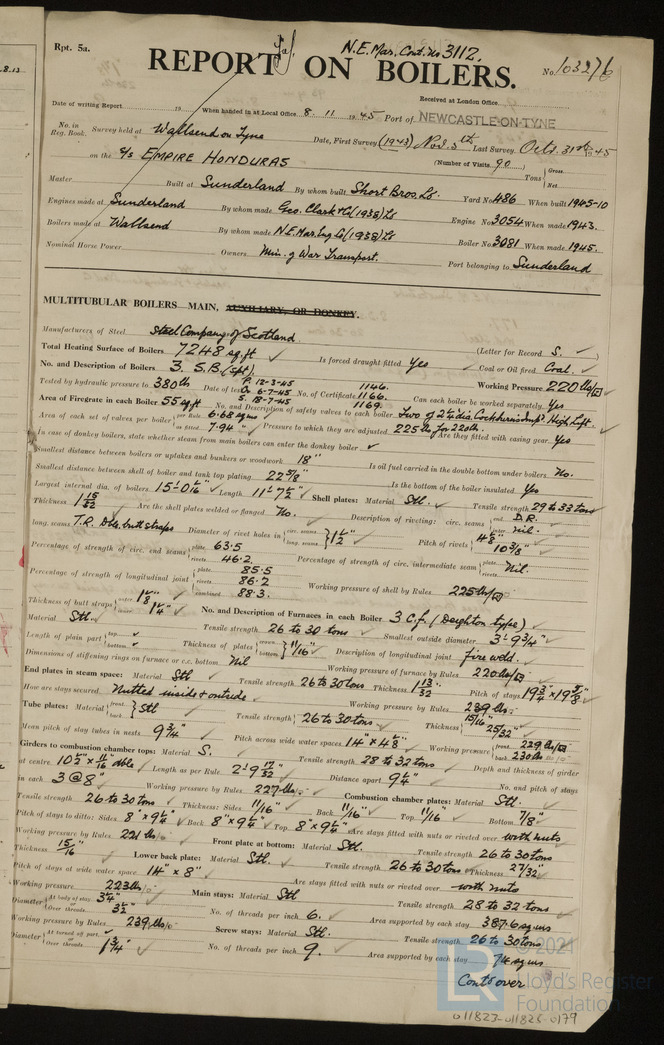 8.13
Rpt. 5a.
N.E. Mar. Cont. No 3112.
REPORT ON BOILERS.
No. 103276
Received at London Office
Date of writing Report 19 When handed in at Local Office 8. 11 1945 Port of NEWCASTLE-ON-TYNE
No. in Reg. Book. Survey held at Wallsend on Tyne Date, First Survey (1943) Nov. 5th Last Survey Oct. 31st 1945
on the S/S EMPIRE HONDURAS (Number of Visits 90
Tons Gross. Net.
Master Built at Sunderland By whom built Short Bros. Ld. Yard No 486 When built 1945-10
Engines made at Sunderland By whom made Geo. Clark & Co (1938) Ld Engine No 3054 When made 1943.
Boilers made at Wallsend By whom made N.E. Mar. Eng. Co (1938) Ld Boiler No 3081 When made 1945.
Nominal Horse Power Owners Min. of War Transport. Port belonging to Sunderland
MULTITUBULAR BOILERS MAIN, AUXILIARY, OR DONKEY.
Manufacturers of Steel Steel Company of Scotland. (Letter for Record S.
Total Heating Surface of Boilers 7248 sq. ft Is forced draught fitted Yes Coal or Oil fired Coal.
No. and Description of Boilers 3. S.B. (spt). Working Pressure 220 lbs/□"
Tested by hydraulic pressure to 380 lbs Date of test P. 12-3-45 C 6-7-45 S. 18-7-45 No. of Certificate 1146. 1166. 1169. Can each boiler be worked separately Yes
Area of Firegrate in each Boiler 55 sq ft No. and Description of safety valves to each boiler Two of 2½" dia Cockburn's Impd High Lift.
Area of each set of valves per boiler per Rule 6.68 sq ins as fitted 7.94 Pressure to which they are adjusted 225 lbs for 220 lb. Are they fitted with easing gear Yes
In case of donkey boilers, state whether steam from main boilers can enter the donkey boiler
Smallest distance between boilers or uptakes and bunkers or woodwork 18" Is oil fuel carried in the double bottom under boilers No.
Smallest distance between shell of boiler and tank top plating 22 5/8" Is the bottom of the boiler insulated Yes
Largest internal dia. of boilers 15'-0 1/16" Length 11'-7½" Shell plates: Material Stl. Tensile strength 29 to 33 tons
Thickness 1 15/32 Are the shell plates welded or flanged No. Description of riveting: circ. seams end D.R. inter nil.
long. seams T.R. Dble. butt straps Diameter of rivet holes in circ. seams long. seams 1½" Pitch of rivets 4⅛" 10⅜"
Percentage of strength of circ. end seams plate 63.5 rivets 46.2 Percentage of strength of circ. intermediate seam plate rivets Nil.
Percentage of strength of longitudinal joint plate 85.5 rivets 86.2 combined 88.3. Working pressure of shell by Rules 225 lbs/□"
Thickness of butt straps outer 1⅛" inner 1¼" No. and Description of Furnaces in each Boiler 3 C.f. (Deighton type)
Material Stl. Tensile strength 26 to 30 tons Smallest outside diameter 3'-9¾"
Length of plain part top bottom Thickness of plates crown bottom 11/16" Description of longitudinal joint fire weld.
Dimensions of stiffening rings on furnace or c.c. bottom Nil Working pressure of furnace by Rules 220 lbs/□"
End plates in steam space: Material Stl Tensile strength 26 to 30 tons Thickness 1 13/32 Pitch of stays 19¾" x 19⅝"
How are stays secured Nutted inside & outside Working pressure by Rules 239 lbs
Tube plates: Material front back Stl Tensile strength 26 to 30 tons Thickness 15/16" 25/32"
Mean pitch of stay tubes in nests 9¾" Pitch across wide water spaces 14" x 4⅞ Working pressure front 229 lbs/□" back 230 lbs
Girders to combustion chamber tops: Material S. Tensile strength 28 to 32 tons Depth and thickness of girder
at centre 10½" x 11/16 dble Length as per Rule 2'-9 17/32" Distance apart 9¼" No. and pitch of stays
in each 3 @ 8" Working pressure by Rules 227 lbs Combustion chamber plates: Material Stl.
Tensile strength 26 to 30 tons Thickness: Sides 11/16" Back 11/16" Top 11/16" Bottom 7/8"
Pitch of stays to ditto: Sides 8" x 9¼" Back 8" x 9¼" Top 8" x 9¼" Are stays fitted with nuts or riveted over with nuts
Working pressure by Rules 221 lbs Front plate at bottom: Material Stl. Tensile strength 26 to 30 tons
Thickness 15/16" Lower back plate: Material Stl. Tensile strength 26 to 30 tons Thickness 27/32"
Pitch of stays at wide water space 14" x 8" Are stays fitted with nuts or riveted over with nuts
Working pressure 223 lbs Main stays: Material Stl Tensile strength 28 to 32 tons
Diameter At body of stay 3¼" Over threads 3½" No. of threads per inch 6. Area supported by each stay 387.6 sq ins
Working pressure by Rules 239 lbs Screw stays: Material Stl. Tensile strength 26 to 30 tons
Diameter At turned off part Over threads 1¾" No. of threads per inch 9. Area supported by each stay 74 sq ins
Contd over
© 2021
LR Lloyd's Register
Foundation
011823-011826-0179